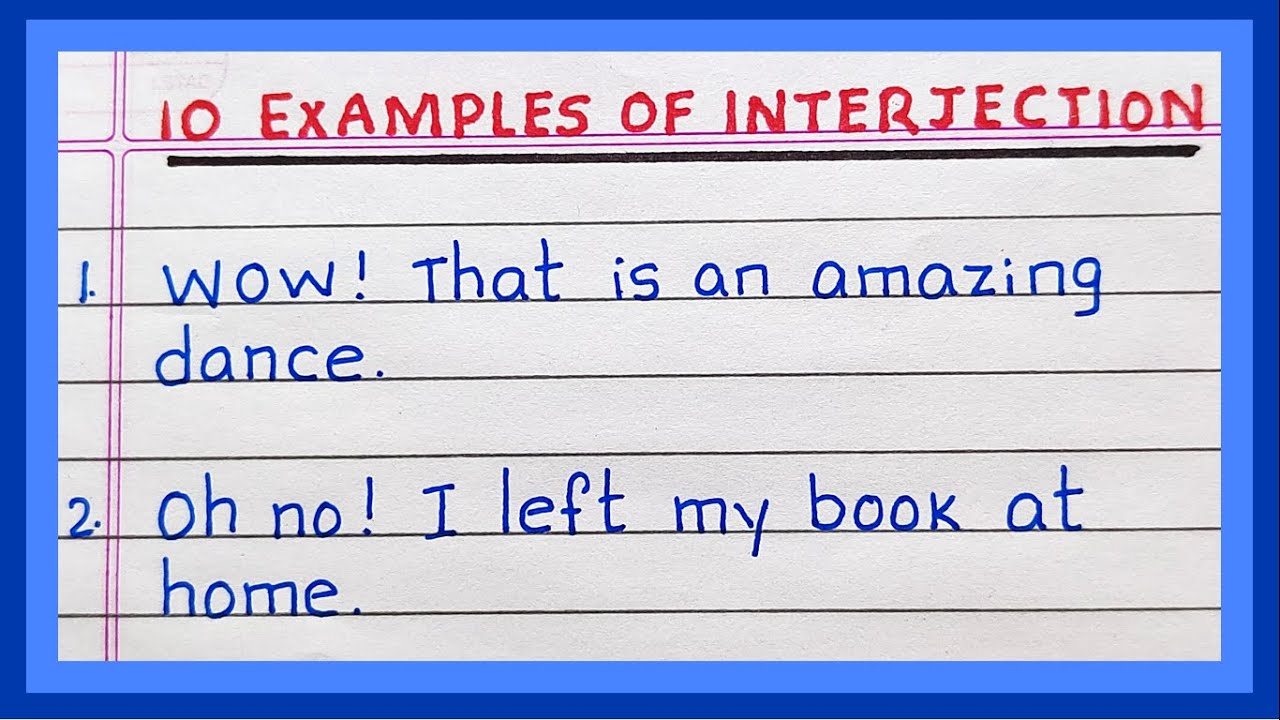 10 EXAMPLES OF INTERJECTION
1. Wow! That is an amazing
dance.
2. Oh no! I left my book at
home.